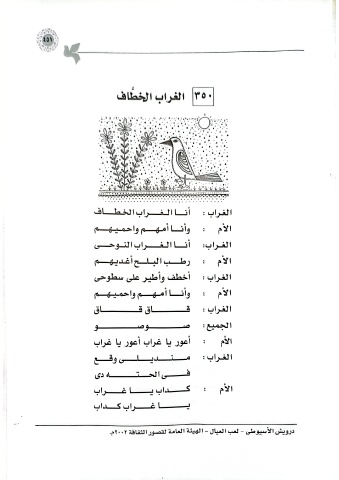 ٤٥١
٣٥٠ الغراب الخطَّاف
الغراب : أنـا الغـراب الخطـاف
الأم : وأنـا أمهـم واحميـهم
الغراب: أنـا الغـراب النـوحـى
الأم : رطـب البلـح أغديـهم
الغراب : أخطف وأطير على سطوحى
الأم : وأنـا أمهـم واحميـهم
الغراب : قـــاق قـــاق
الجميع: صـــوصـــو
الأم : أعور يا غراب أعور يا غراب
الغراب : منـديـلـى وقـع
فـى الحتـه دى
الأم : كـداب يـا غـراب
يـا غـراب كـداب
درويش الأسيوطى - لعب العيال - الهيئة العامة لقصور الثقافة ٢٠٠٢م.